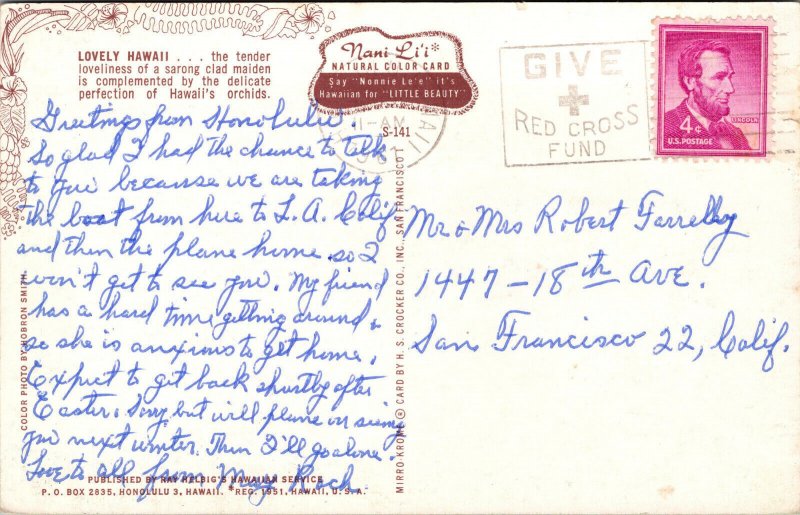 LOVELY HAWAII . . . the tender
loveliness of a sarong clad maiden
is complemented by the delicate
perfection of Hawaii's orchids.
Nani Li'i*
NATURAL COLOR CARD
Say "Nonnie Le'e" it's
Hawaiian for "LITTLE BEAUTY"
S-141
11-AM
GIVE
RED CROSS
FUND
LINCOLN
4¢
U.S. POSTAGE
Greetings from Honolulu!
So glad I had the chance to talk
to you because we are taking
the boat from here to L.A. Calif
and then the plane home so I
won't get to see you. My friend
has a hard time getting around &
so she is anxious to get home.
Expect to get back shortly after
Easter. Sorry but will plan on seeing
you next winter. Then I'll go alone.
Love to all from May Roch.
Mr & Mrs Robert Farrelly
1447 - 18th Ave.
San Francisco 22, Calif.
COLOR PHOTO BY HOBRON SMITH
MIRRO-KROME® CARD BY H. S. CROCKER CO., INC., SAN FRANCISCO 1
PUBLISHED BY RAY HELBIG'S HAWAIIAN SERVICE
P. O. BOX 2835, HONOLULU 3, HAWAII. *REG. 1951, HAWAII, U. S. A.